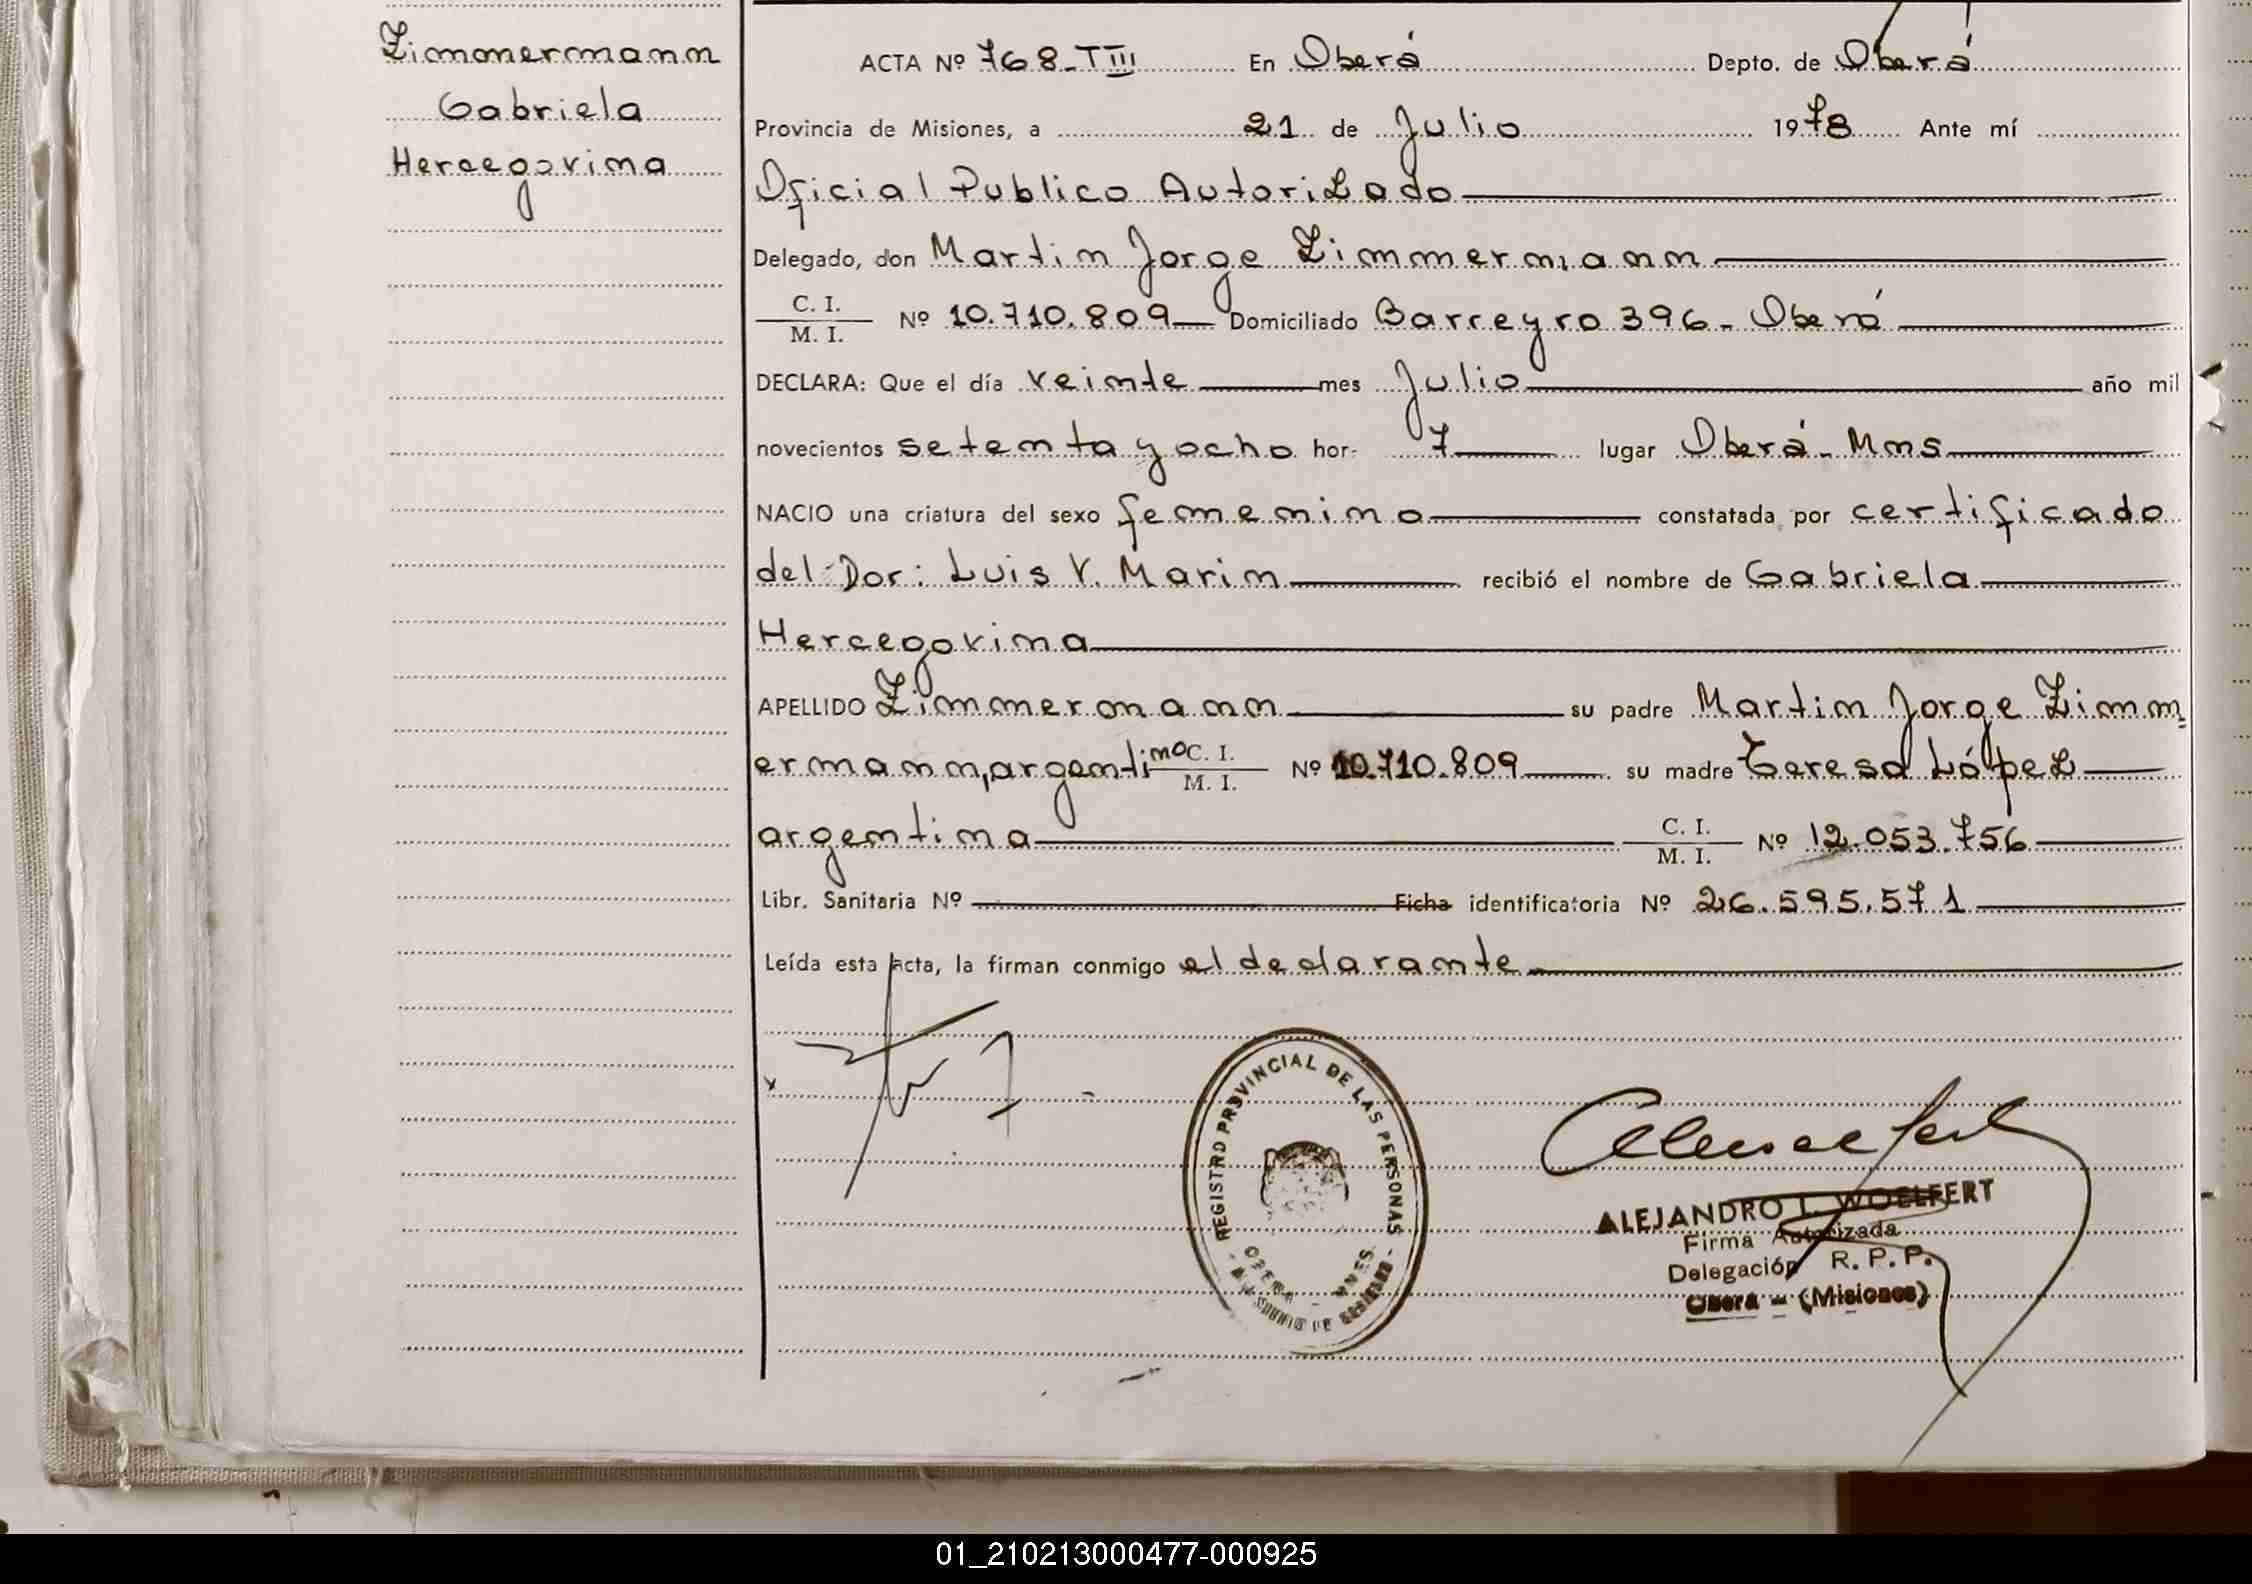 Zimmermann
Gabriela
Hercegovina
ACTA Nº 768-TIII En Oberá Depto. de Oberá
Provincia de Misiones, a 21 de Julio 1978 Ante mí
Oficial Publico Autorizado
Delegado, don Martin Jorge Zimmermann
C. I.
M. I. Nº 10.710.809 Domiciliado Barreyro 396- Oberá
DECLARA: Que el día veinte mes Julio año mil
novecientos setenta y ocho hor. 7 lugar Oberá- Mnes
NACIO una criatura del sexo femenino constatada por certificado
del Dor: Luis V. Marin recibió el nombre de Gabriela
Hercegovina
APELLIDO Zimmermann su padre Martin Jorge Zimm=
ermann, argentino C. I.
M. I. Nº 10.710.809 su madre Teresa López
argentina C. I.
M. I. Nº 12.053.756
Libr. Sanitaria Nº Ficha identificatoria Nº 26.595.571
Leída esta acta, la firman conmigo el declarante
REGISTRO PROVINCIAL DE LAS PERSONAS
ALEJANDRO L. WOELFERT
Firma Autorizada
Delegación R. P. P.
Obera - (Misiones)
01_210213000477-000925